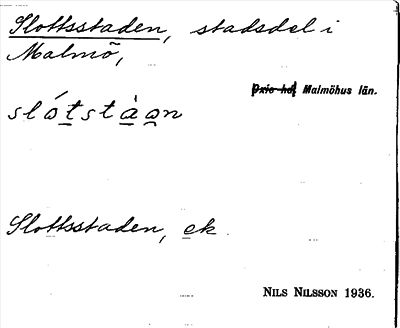 Slottsstaden, stadsdel i
Malmö,
Oxie hd Malmöhus län.
slótstàọn
Slottsstaden, ek.
NILS NILSSON 1936.